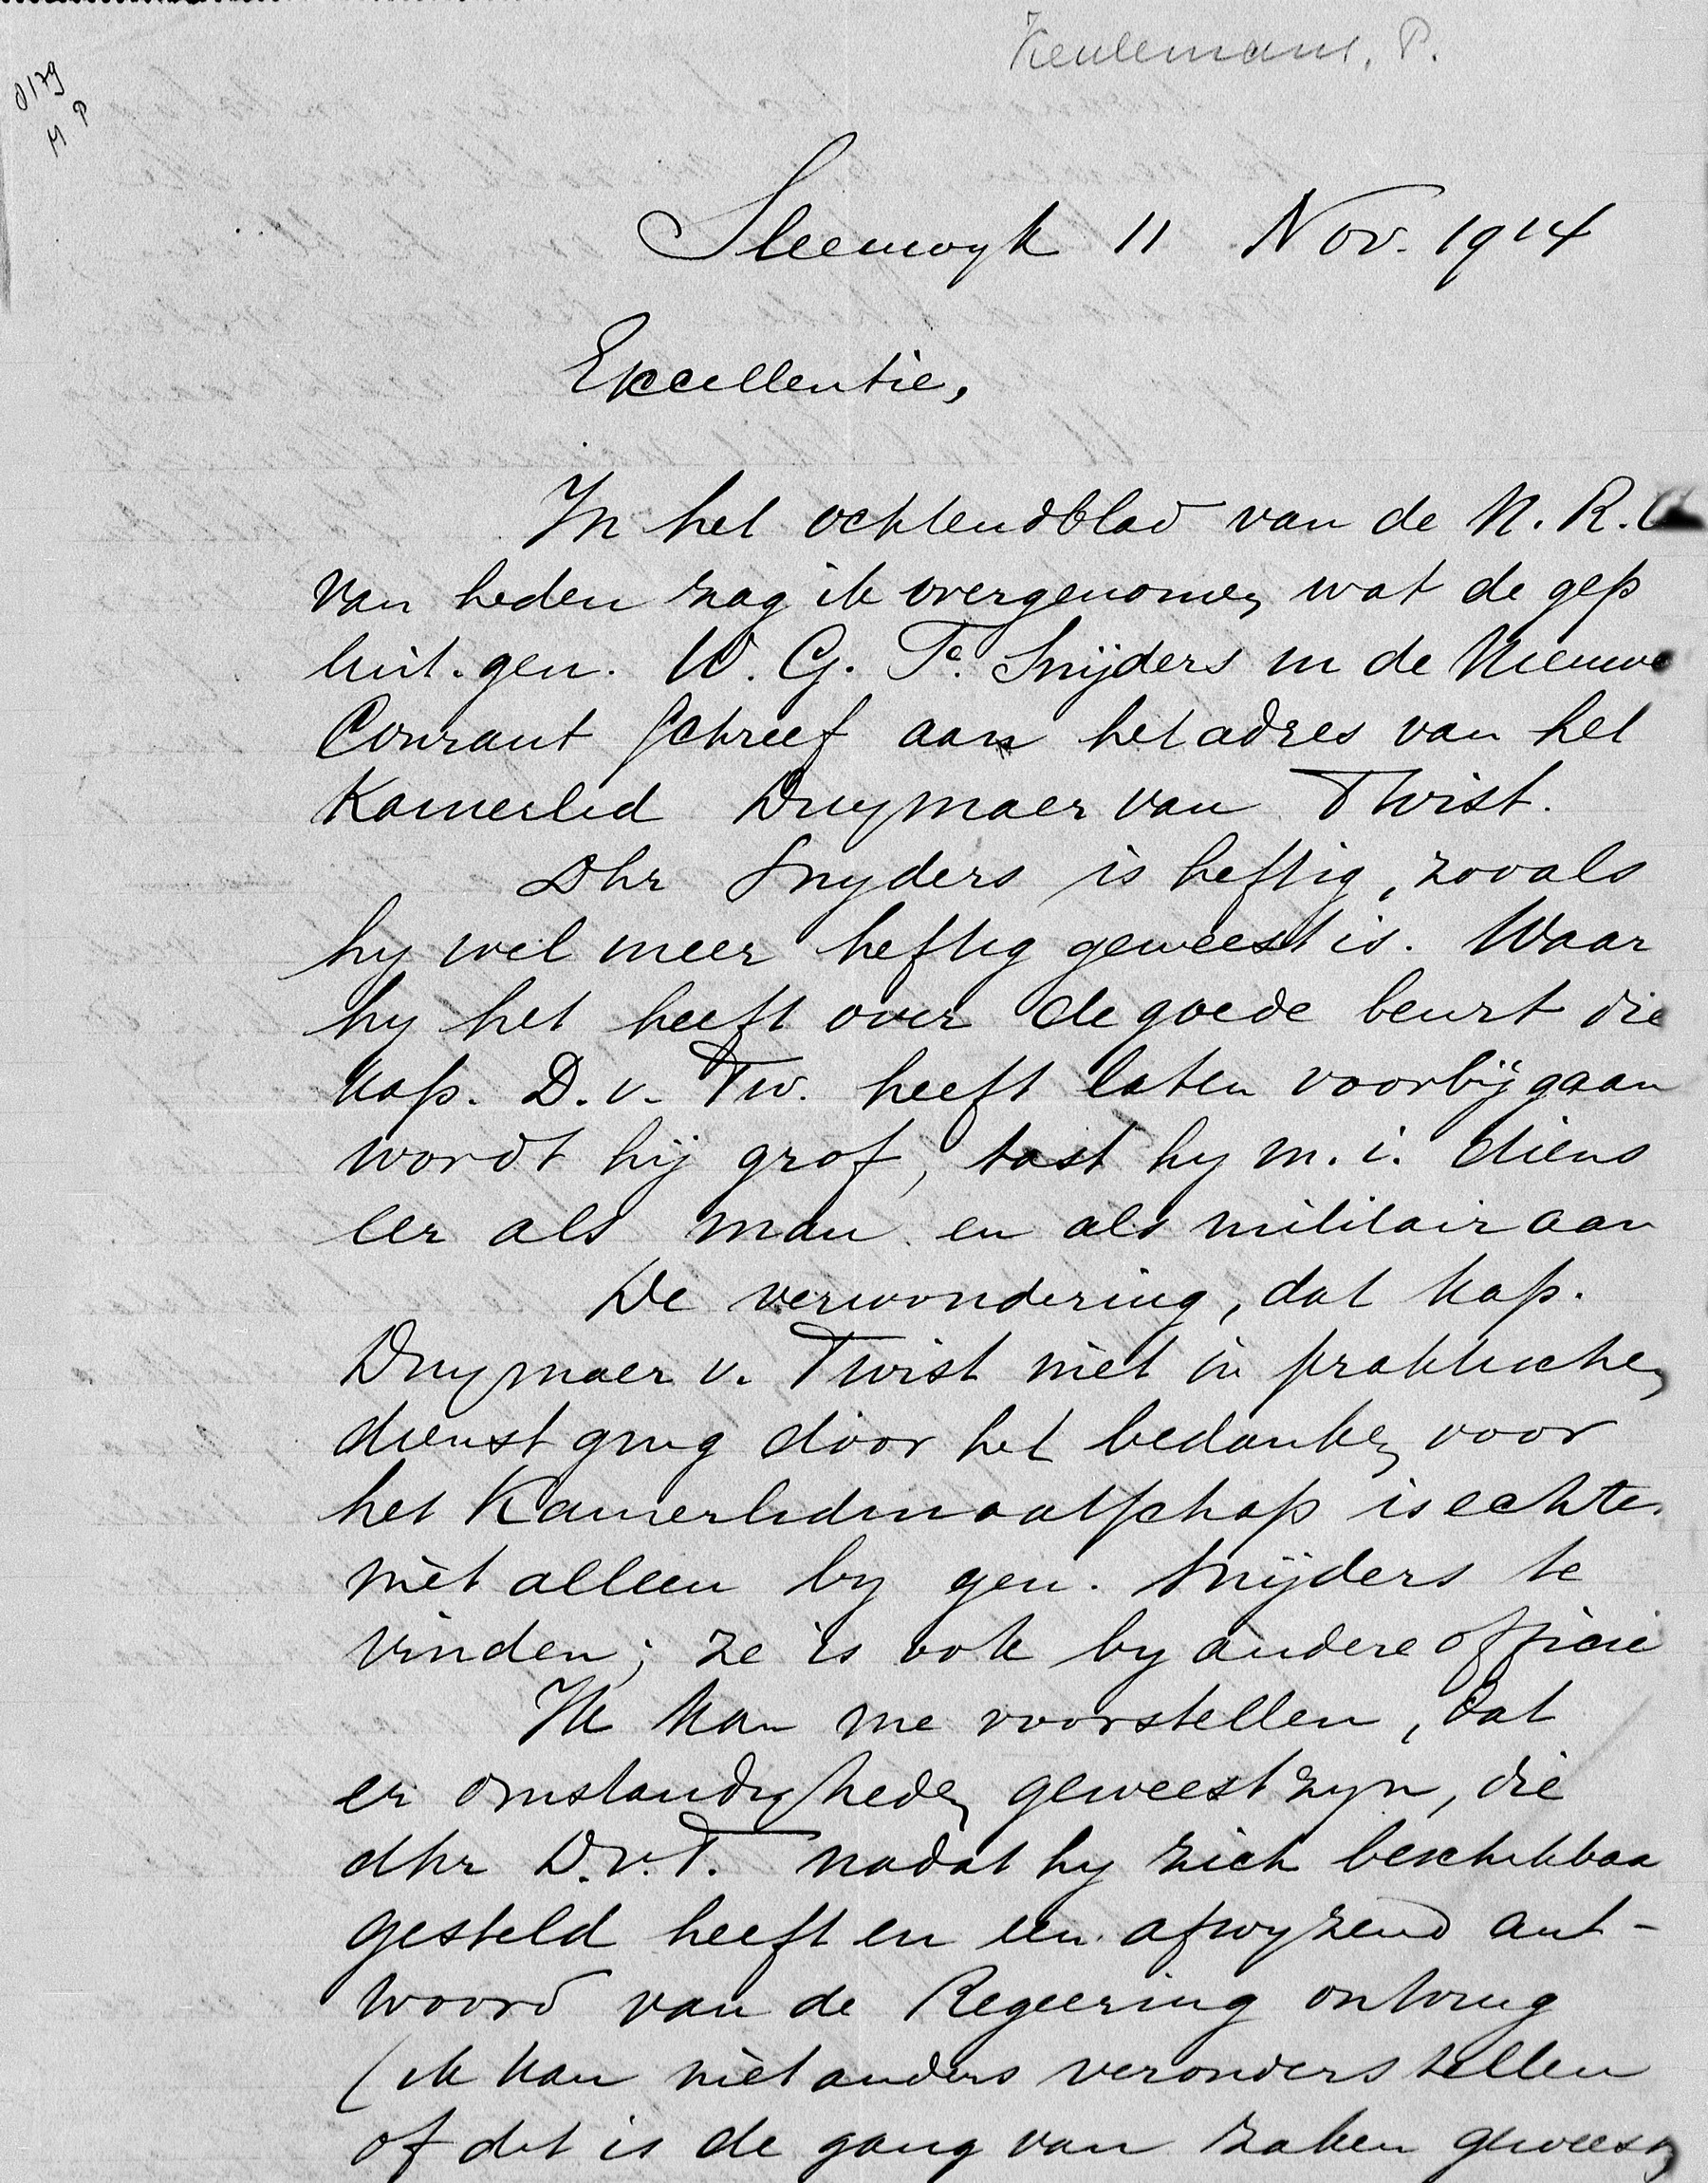 Keulemans, P.
0179
M P
Sleeuwyk 11 Nov. 1914
Excellentie,
In het ochtendblad van de N. R. C
van heden zag ik overgenomen wat de gep
luit. gen. W. G. F. Snijders in de Nieuwe
Courant schreef aan het adres van het
Kamerlid Duymaer van Twist.
Dhr Snyders is heftig, zooals
hy wel meer heftig geweest is. Waar
hy het heeft over de goede beurt die
kap. D. v. Tw. heeft laten voorbijgaan
wordt hij grof, tast hy m. i. diens
eer als man en als militair aan
De verwondering, dat kap.
Duymaer v. Twist niet in praktischen
dienst ging door het bedanken voor
het Kamerlidmaatschap is echter
niet alleen by gen. Snijders te
vinden; ze is ook by andere officie
Ik kan me voorstellen, dat
er omstandigheden geweest zyn, die
dhr D.v.T. nadat hy zich beschikbaa
gesteld heeft en een afwyzend ant-
woord van de Regeering ontving
(ik kan niet anders veronderstellen
of dit is de gang van zaken geweest